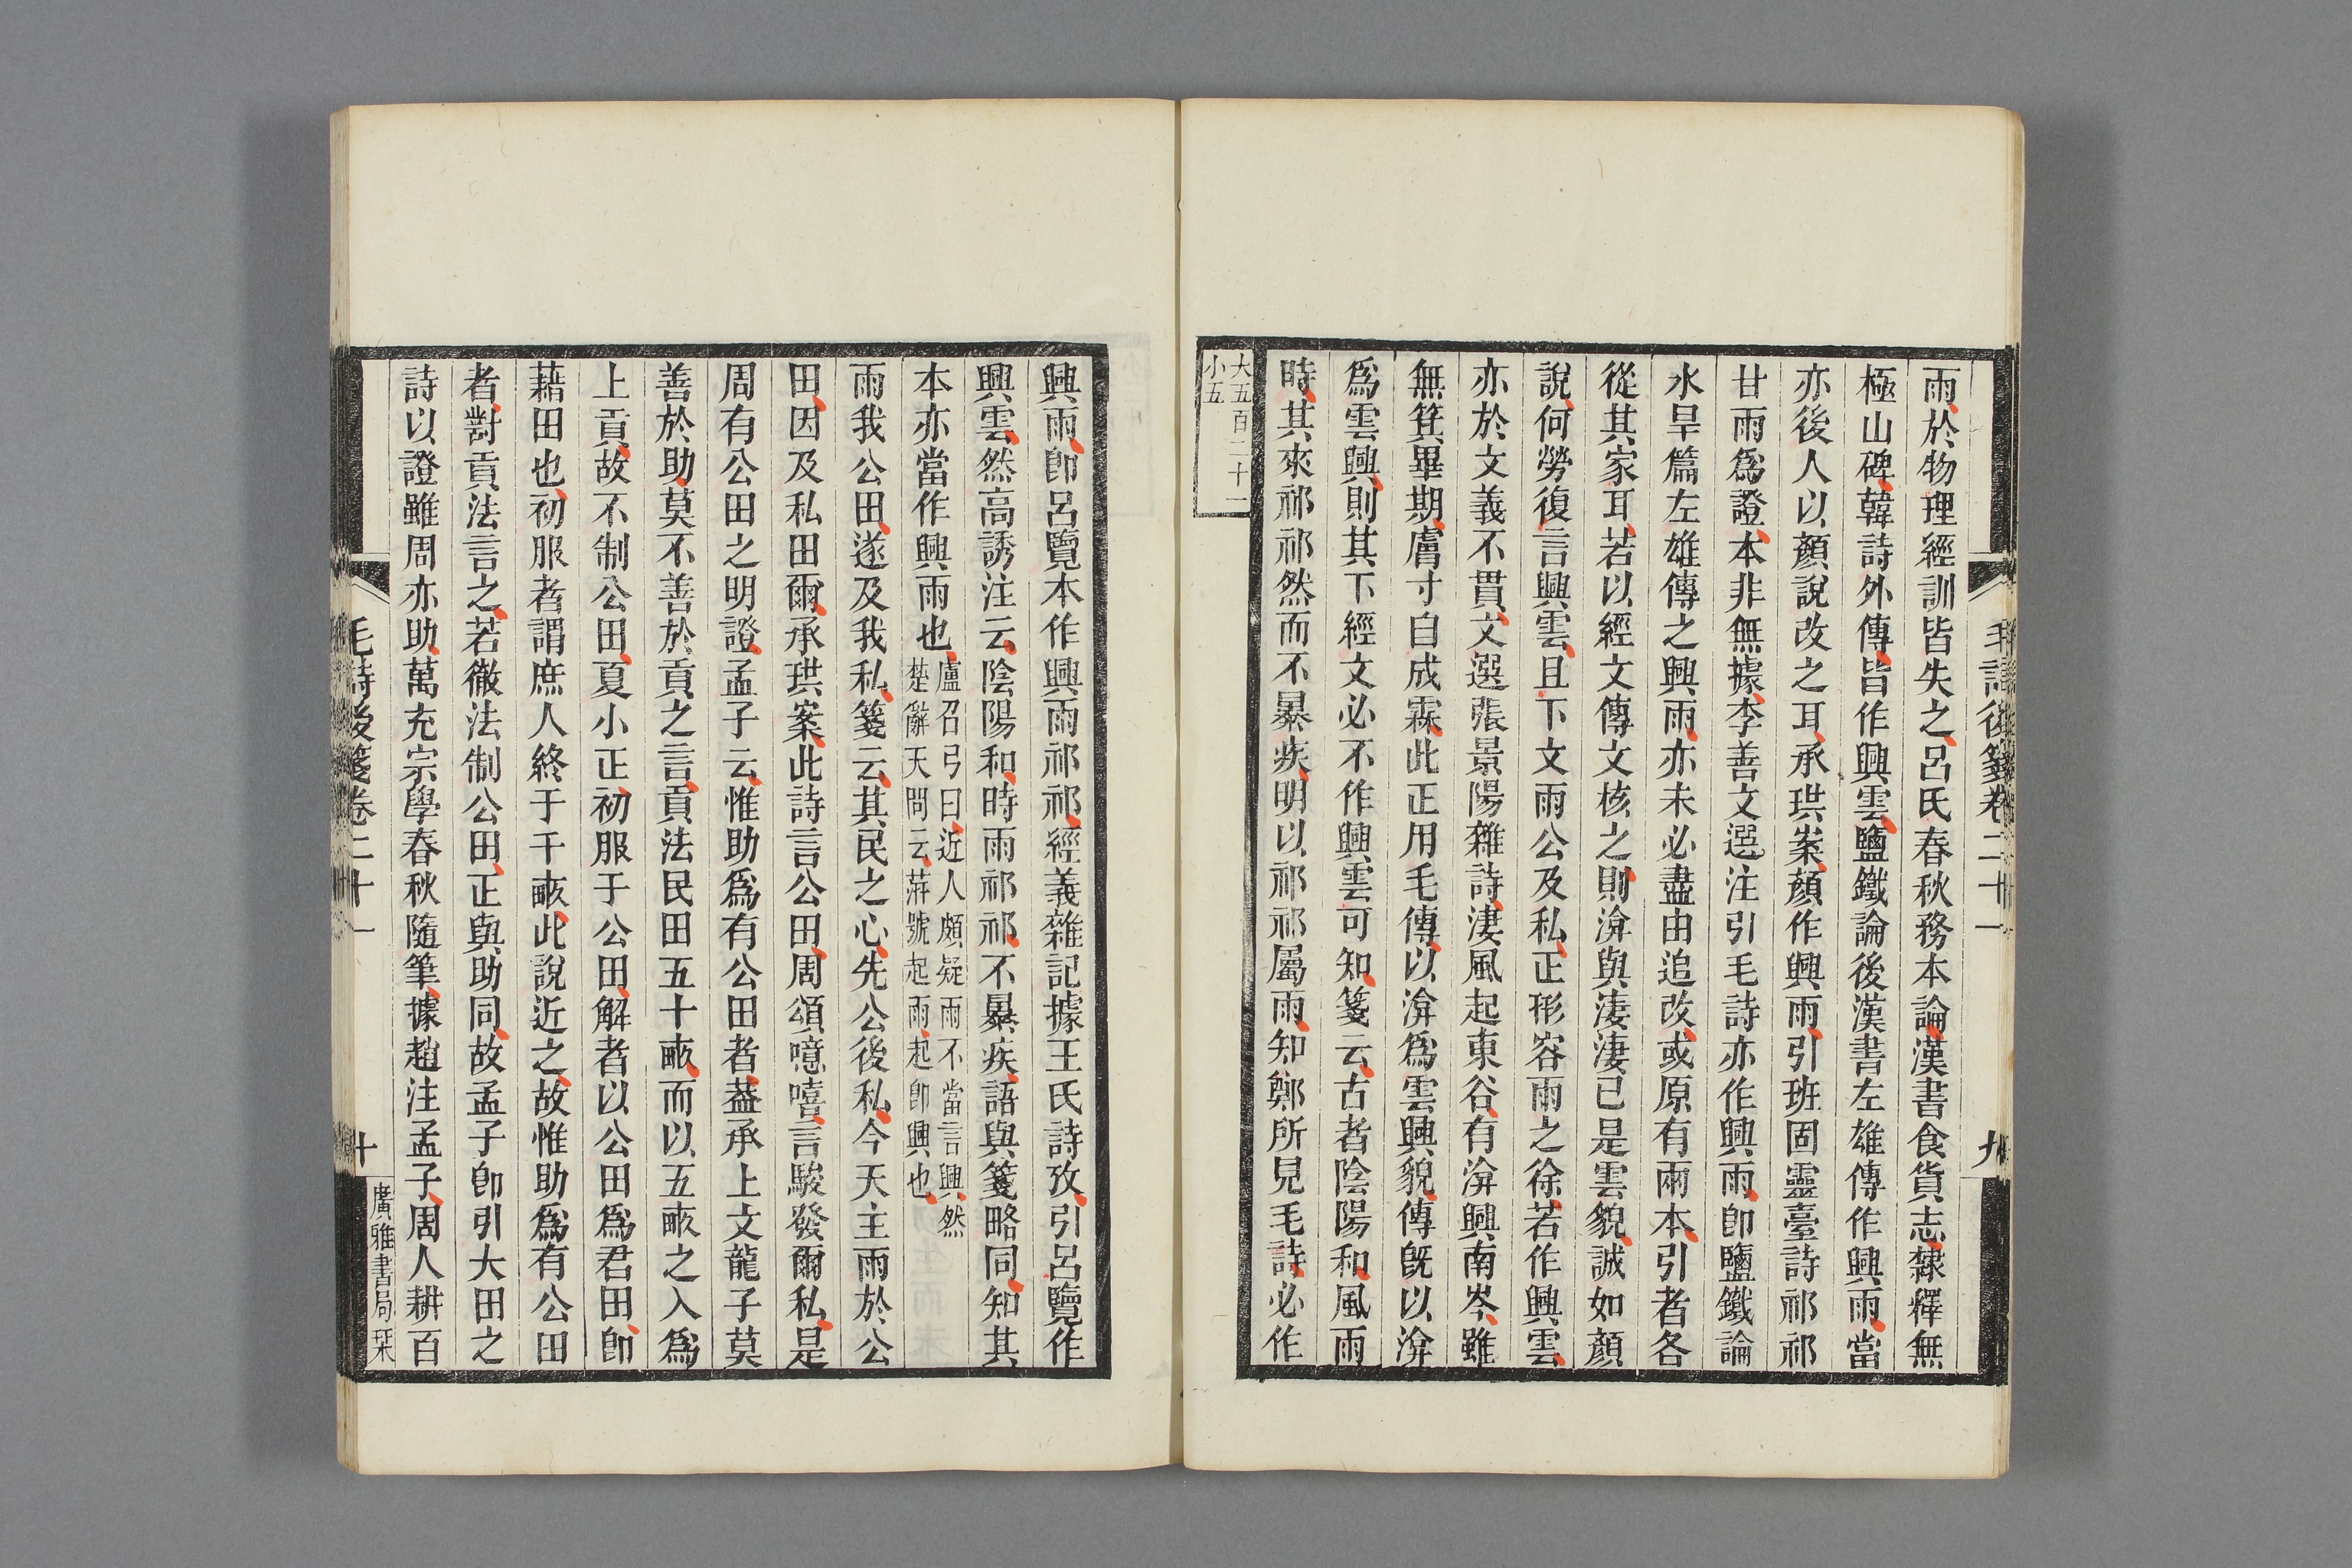 毛詩後箋卷二十一
九
雨於物理經訓皆失之呂氏春秋務本論漢書食貨志隸釋無
極山碑韓詩外傳皆作興雲鹽鐵論後漢書左雄傳作興雨當
亦後人以顏說改之耳承珙案顏作興雨引班固靈臺詩祁祁
甘雨爲證本非無據李善文選注引毛詩亦作興雨卽鹽鐵論
水旱篇左雄傳之興雨亦未必盡由追改或原有兩本引者各
從其家耳若以經文傳文核之則渰與淒淒已是雲貌誠如顏
說何勞復言興雲且下文雨公及私正形容雨之徐若作興雲
亦於文義不貫文選張景陽雜詩淒風起東谷有渰興南岑雖
無箕畢期膚寸自成霖此正用毛傳以渰爲雲興貌傳旣以渰
爲雲興則其下經文必不作興雲可知箋云古者陰陽和風雨
時其來祁祁然而不暴疾明以祁祁屬雨知鄭所見毛詩必作
大五百二十一
小五
興雨卽呂覽本作興雨祁祁經義雜記據王氏詩攷引呂覽作
興雲然高誘注云陰陽和時雨祁祁不暴疾語與箋略同知其
本亦當作興雨也盧召弓曰近人頗疑雨不當言興然
楚辭天問云蓱號起雨起卽興也
雨我公田遂及我私箋云其民之心先公後私今天主雨於公
田因及私田爾承珙案此詩言公田周頌噫嘻言駿發爾私是
周有公田之明證孟子云惟助爲有公田者葢承上文龍子莫
善於助莫不善於貢之言貢法民田五十畞而以五畞之入爲
上貢故不制公田夏小正初服于公田解者以公田爲君田卽
藉田也初服者謂庶人終于千畞此說近之故惟助爲有公田
者對貢法言之若徹法制公田正與助同故孟子卽引大田之
詩以證雖周亦助萬充宗學春秋隨筆據趙注孟子周人耕百
毛詩後箋卷二十一
十
廣雅書局栞